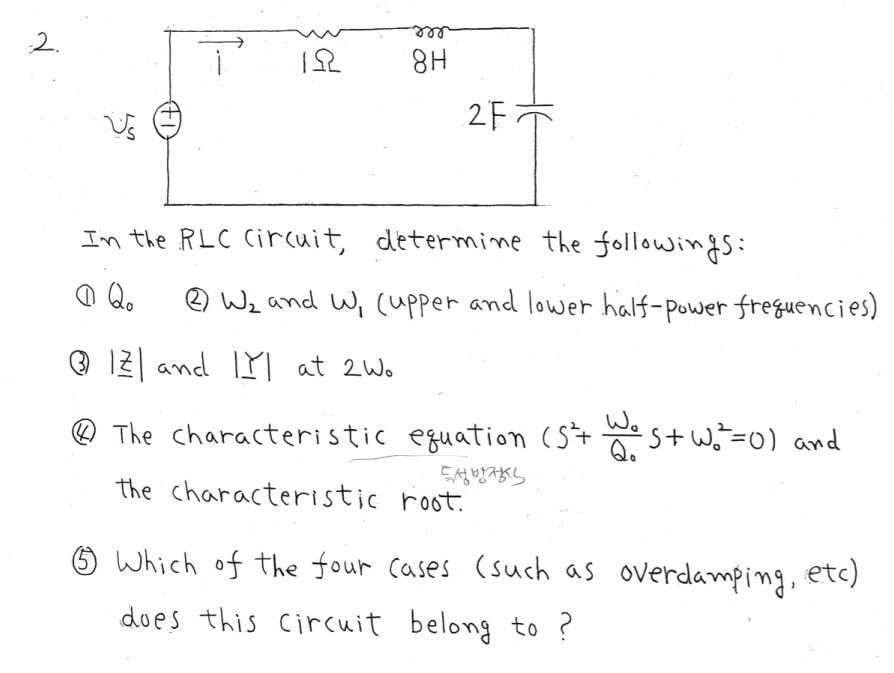 2.
i 1Ω 8H
Vs + - 2F
In the RLC circuit, determine the followings:
① Q₀ ② W₂ and W₁ (upper and lower half-power frequencies)
③ |Z| and |Y| at 2W₀
④ The characteristic equation (S²+ W₀/Q₀ S+W₀²=0) and
특성방정식
the characteristic root.
⑤ Which of the four cases (such as overdamping, etc)
does this circuit belong to ?